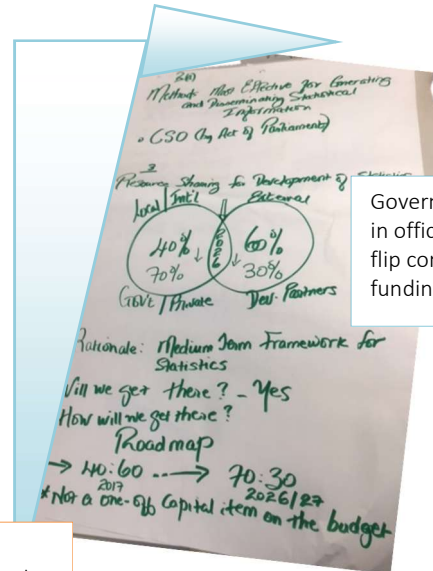 3(a)
Methods Most Effective for Generating
and Disseminating Statistical
Information
• CSO (by Act of Parliament)
3
Resource Sharing for Development of Statistics
Local/Int'l External
40% 2026 60%
70% 30%
Govt/Private Dev. Partners
Rationale: Medium Term Framework for
Statistics
Will we get there? - Yes
How will we get there?
Roadmap
→ 40:60 ---→ 70:30
2017 2026/27
*Not a one-off Capital item on the budget
Govern
in offic
flip con
fundin